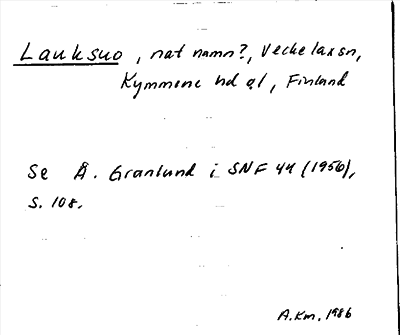 Lauksuo, nat namn?, Veckelax sn,
Kymmene hd ö, Finland
Se Å. Granlund i SNF 44 (1956),
s. 108.
A.Km. 1986